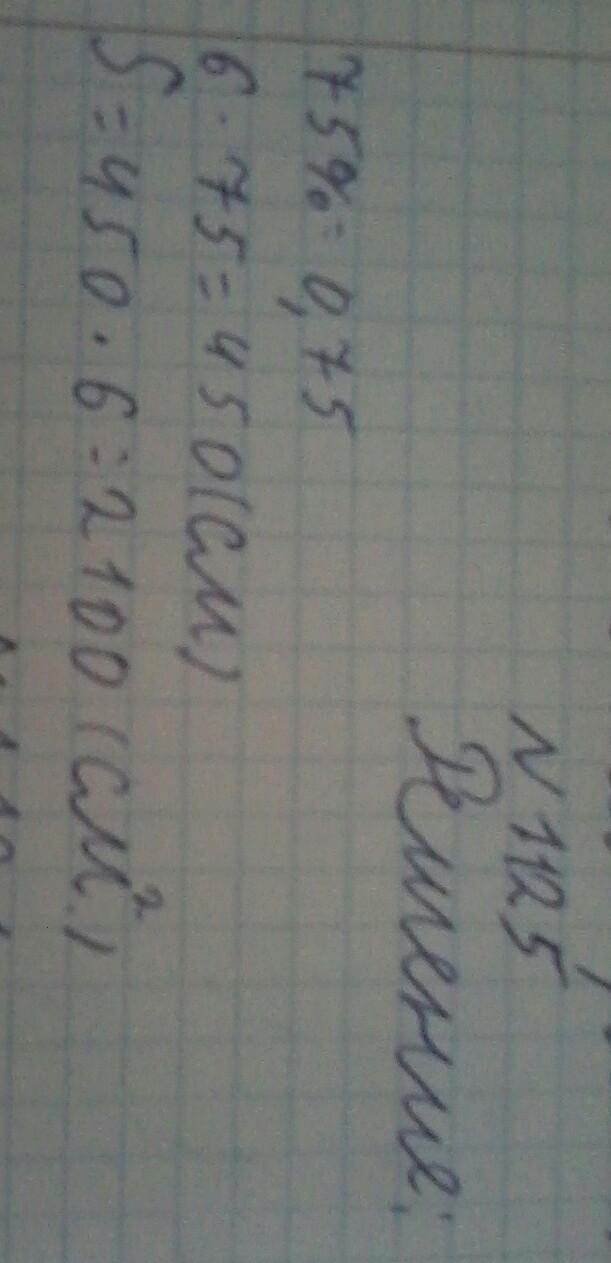 N 1125
Решение:
75% = 0,75
6 · 75 = 450 (см)
S = 450 · 6 = 2100 (см²)